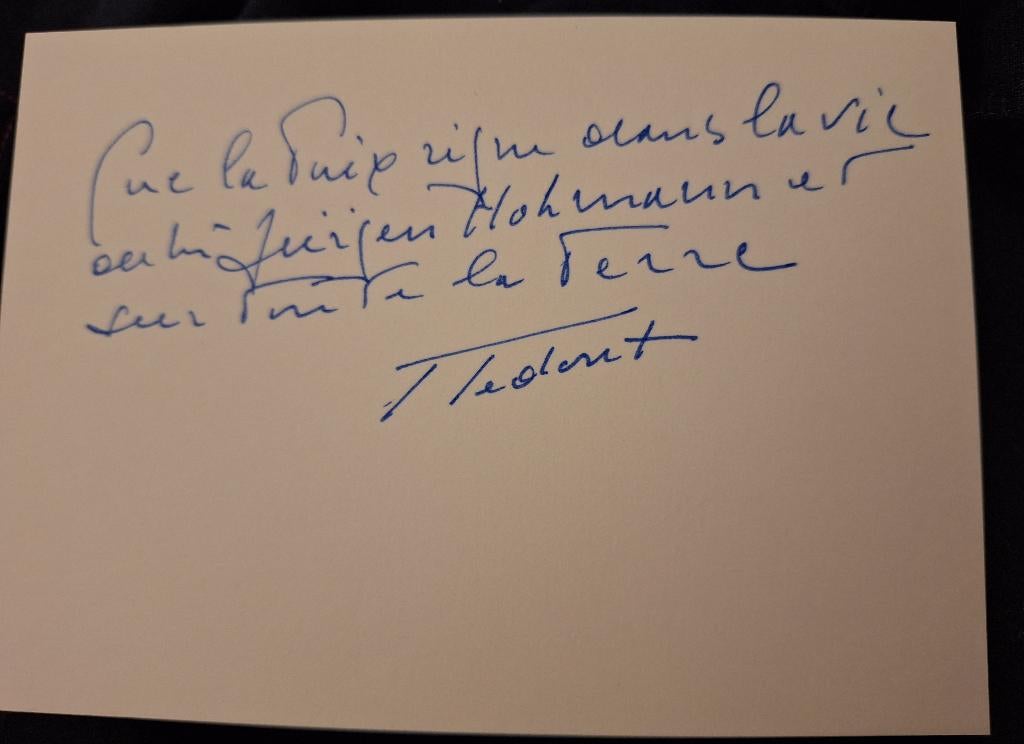 Que la Paix règne dans la vie
de Jürgen Hohmann et
sur toute la Terre